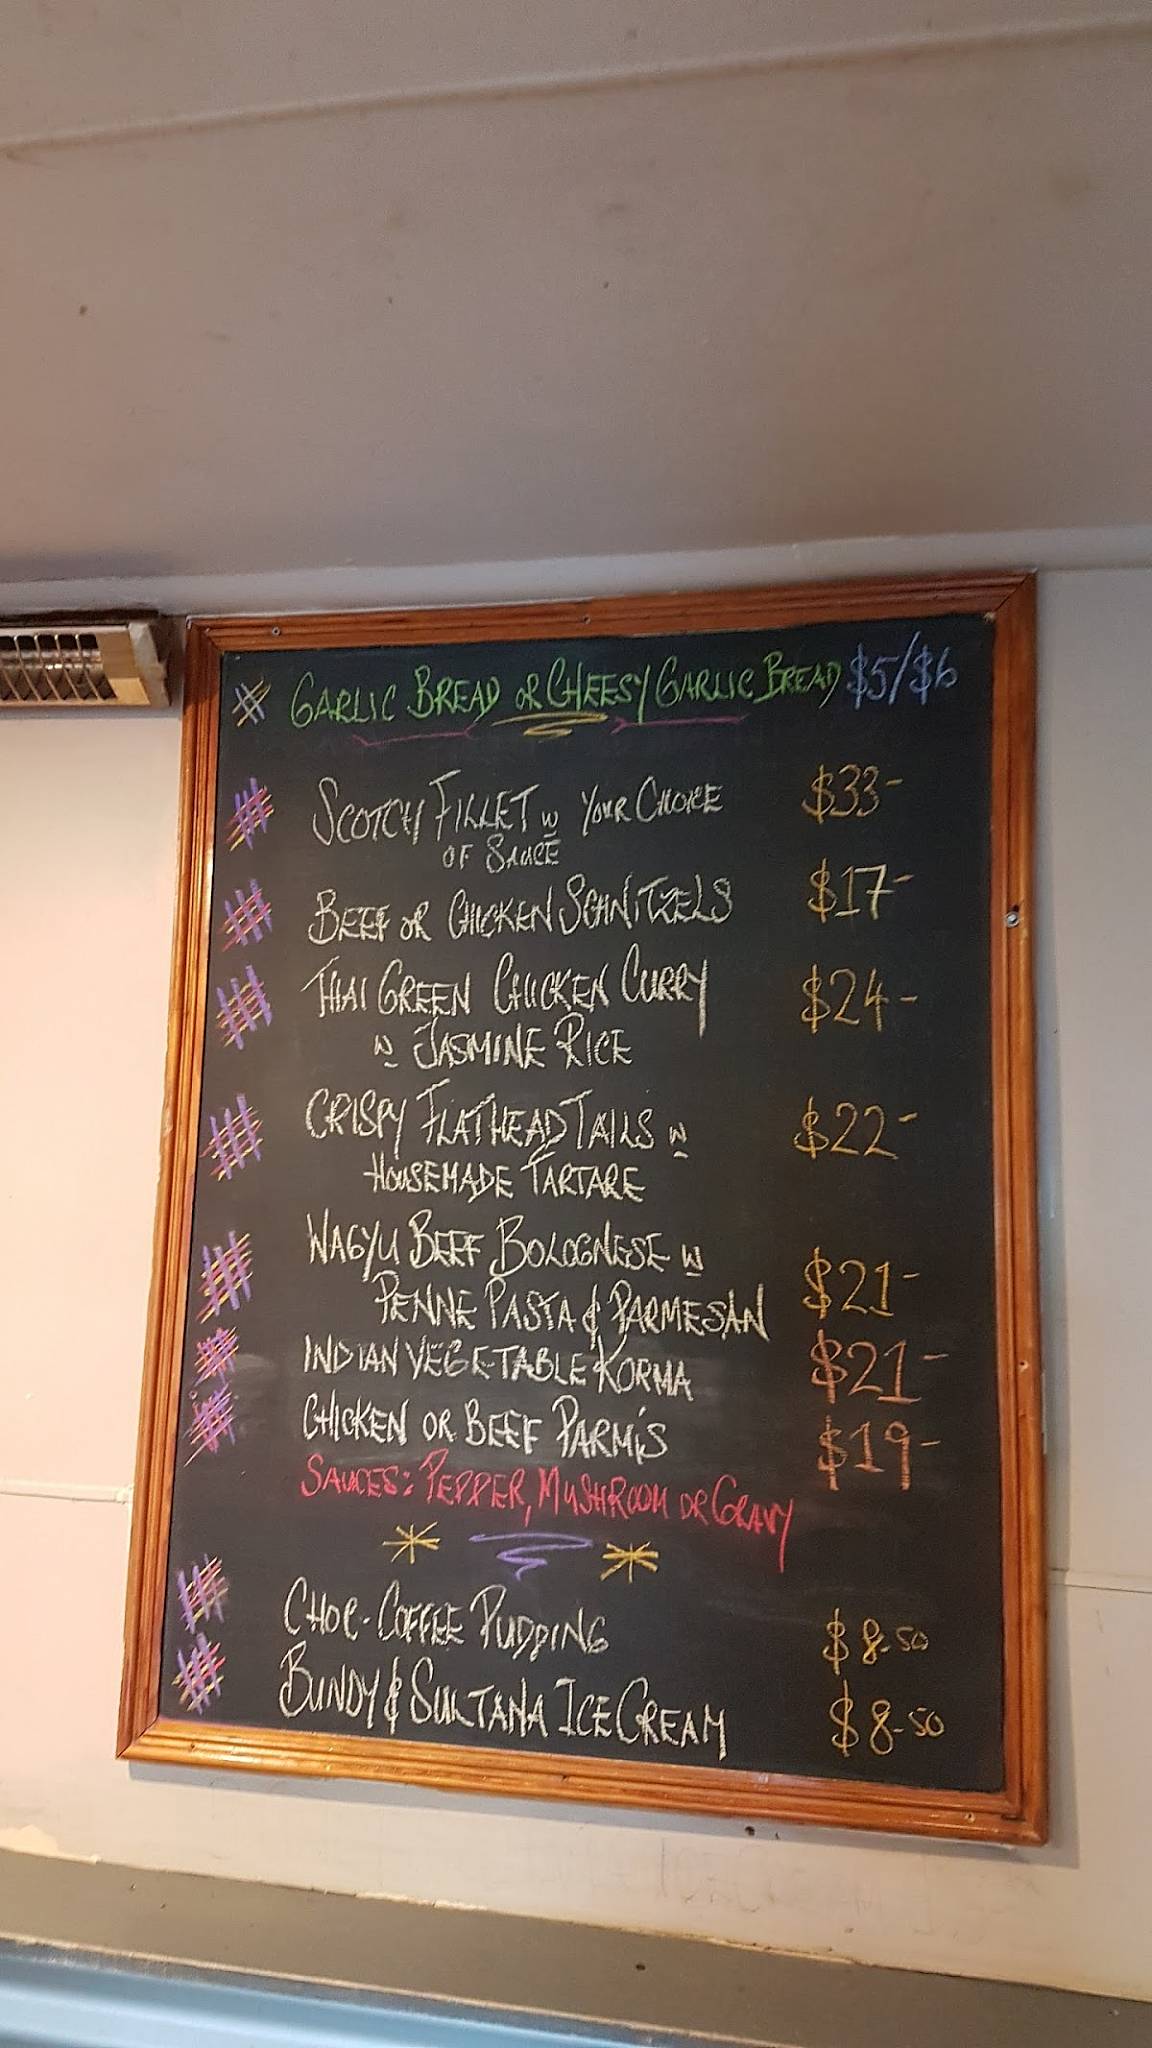 GARLIC BREAD OR CHEESY GARLIC BREAD $5/$6
SCOTCH FILLET W YOUR CHOICE $33-
OF SAUCE
BEEF OR CHICKEN SCHNITZELS $17-
THAI GREEN CHICKEN CURRY $24-
W JASMINE RICE
CRISPY FLATHEAD TAILS W $22-
HOUSEMADE TARTARE
WAGYU BEEF BOLOGNESE W
PENNE PASTA & PARMESAN $21-
INDIAN VEGETABLE KORMA $21-
CHICKEN OR BEEF PARMIS $19-
SAUCES: PEPPER, MUSHROOM OR GRAVY
CHOC-COFFEE PUDDING $8-50
BUNDY & SULTANA ICE CREAM $8-50